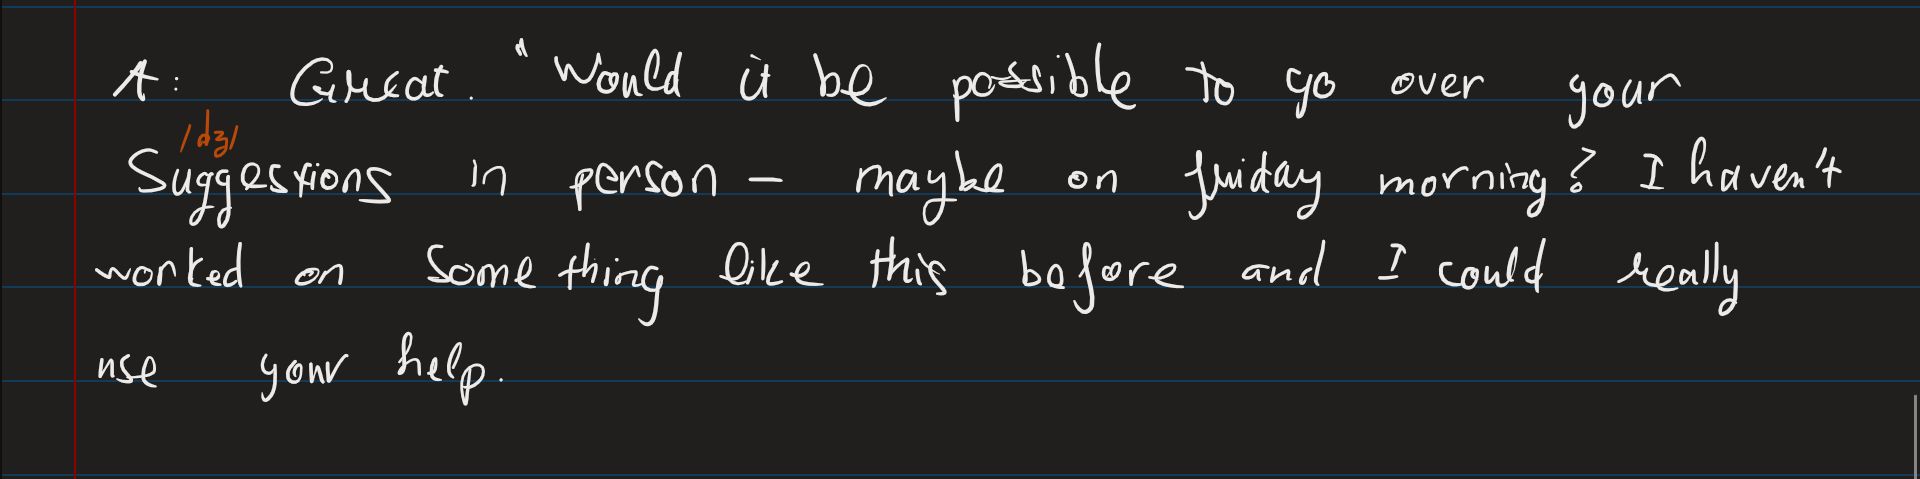 A: Great. "Would it be possible to go over your
/dʒ/
Suggestions in person – maybe on friday morning? I haven't
worked on something like this before and I could really
use your help.